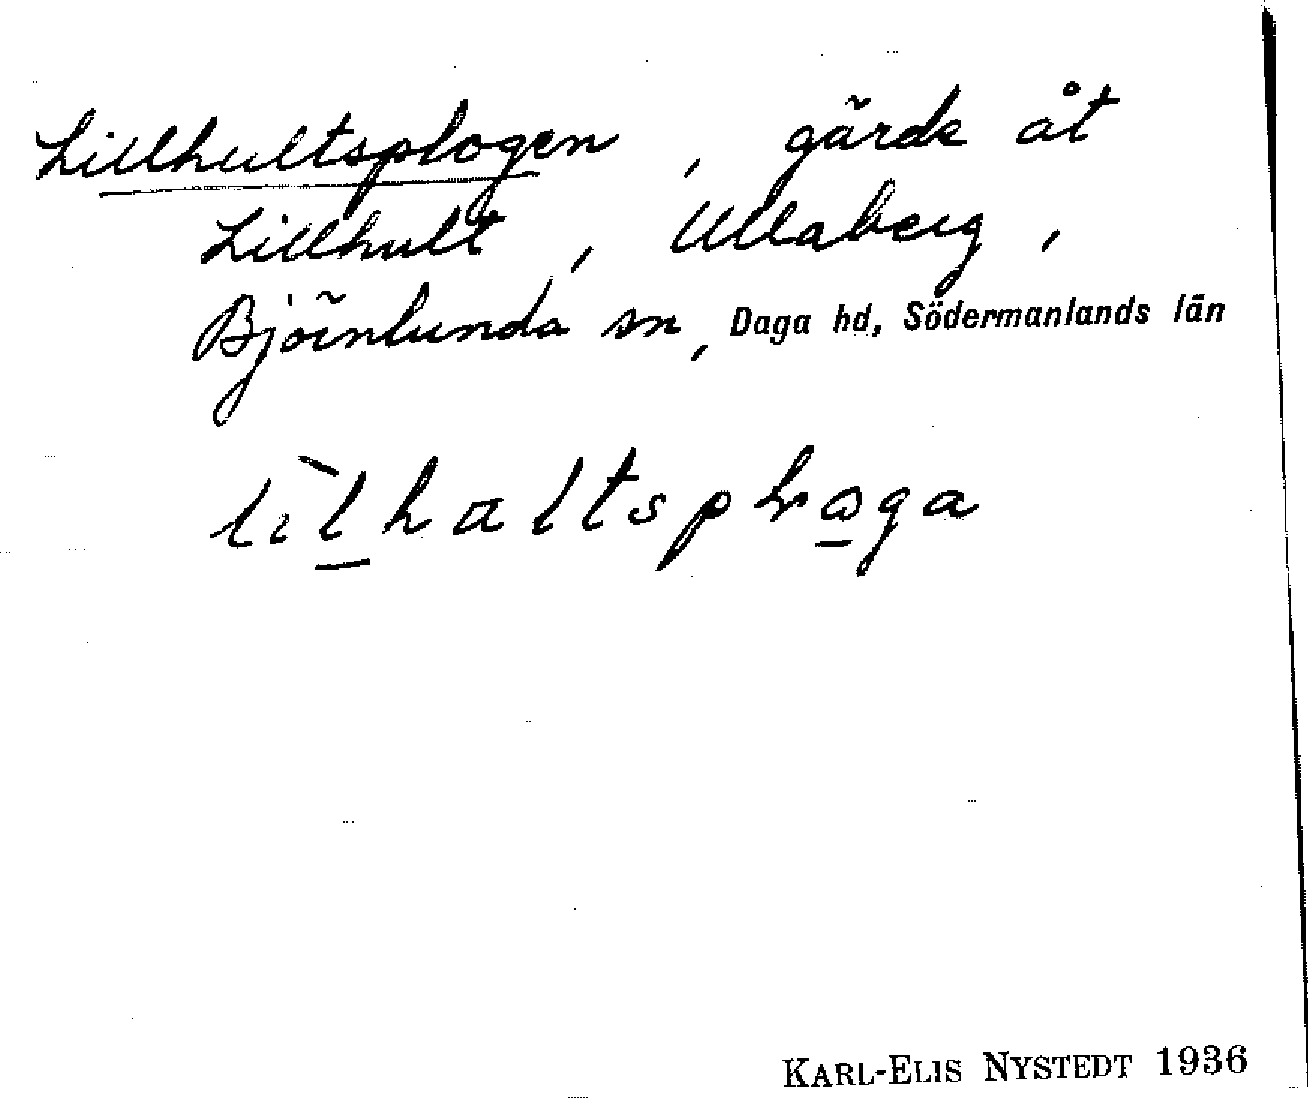 Lillhultsplogen, gärde åt
Lillhult, Ullaberg,
Björnlunda sn, Daga hd, Södermanlands län
KARL-ELIS NYSTEDT 1936